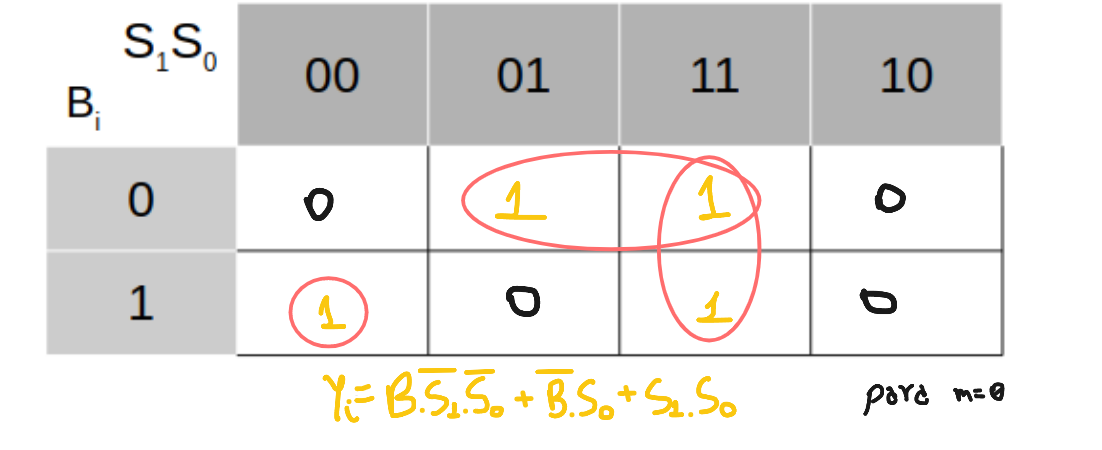 S₁S₀
Bᵢ
00 01 11 10
0 0 1 1 0
1 1 0 1 0
Yᵢ= B.S̅₁.S̅₀ + B̅.S₀ + S₁.S₀
para m=0